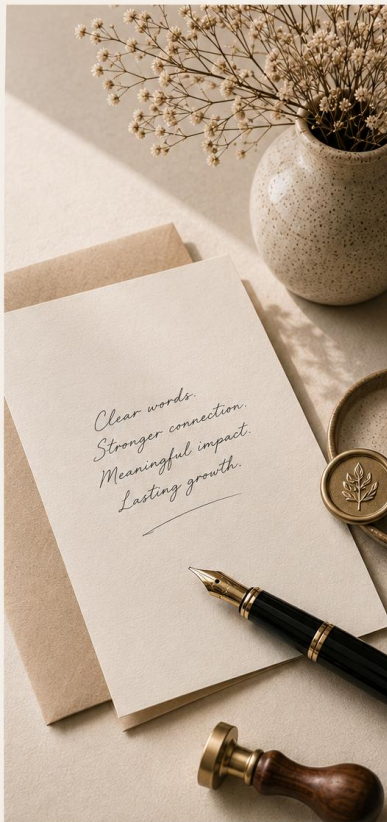 Clear words.
Stronger connection.
Meaningful impact.
Lasting growth.